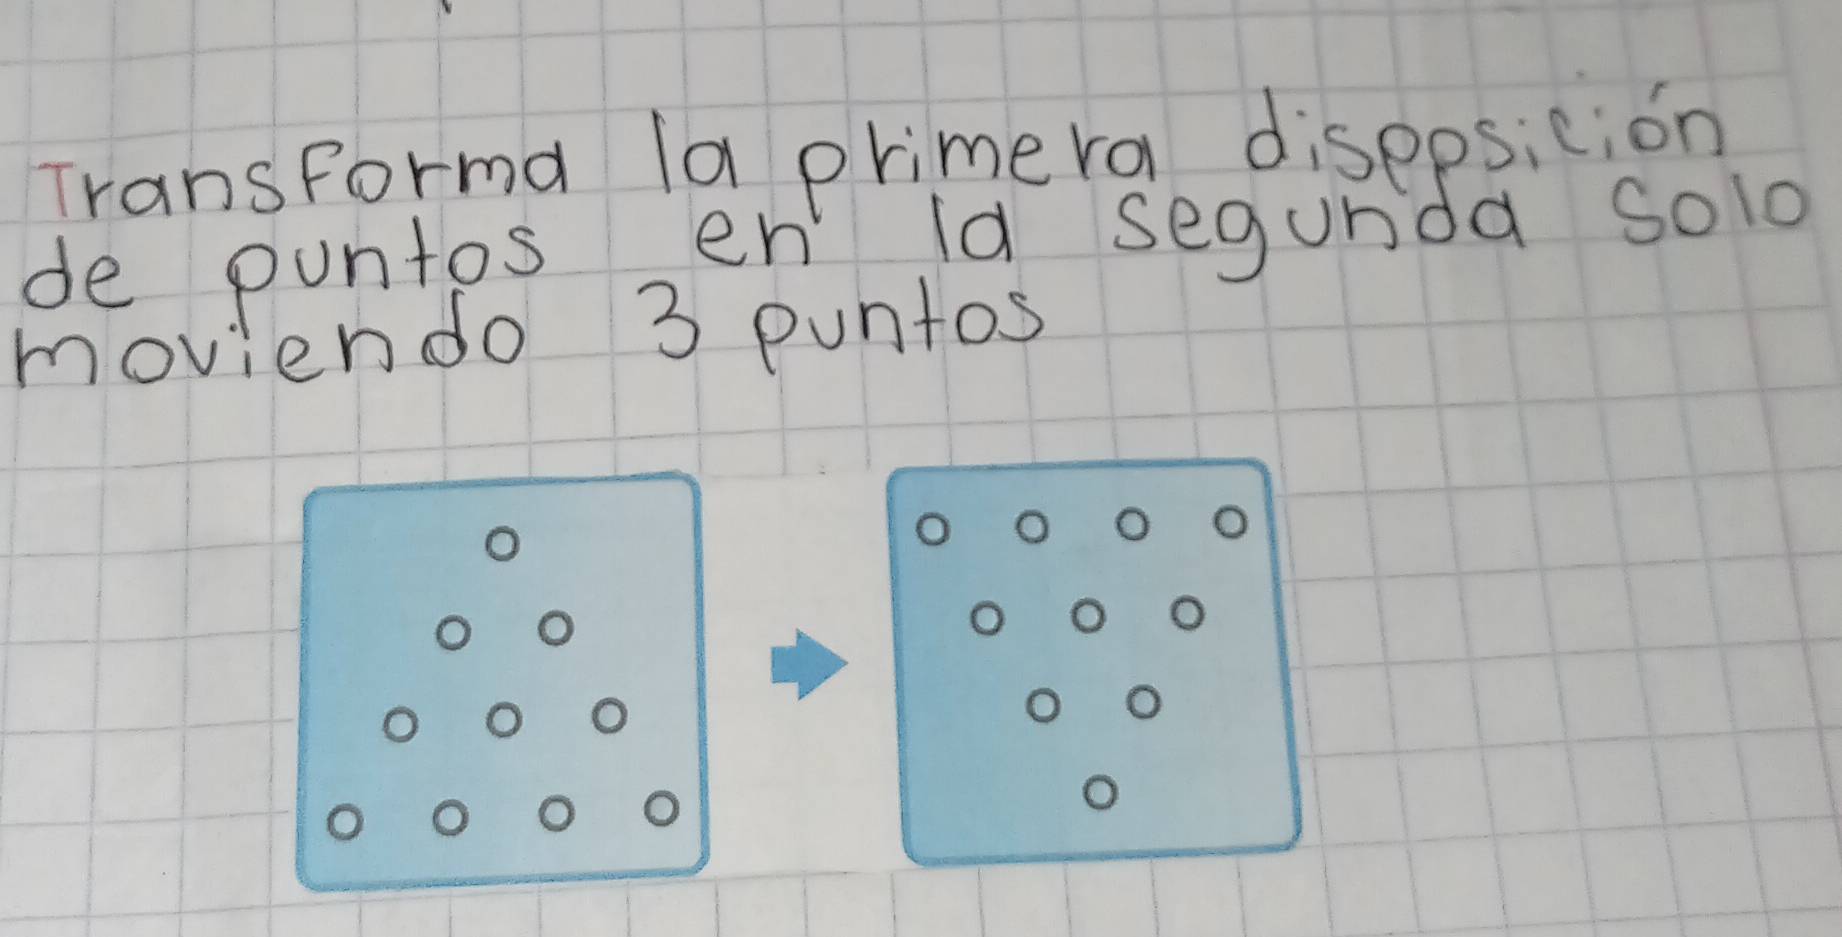 Transforma la primera disposición
de puntos en la segunda solo
moviendo 3 puntos